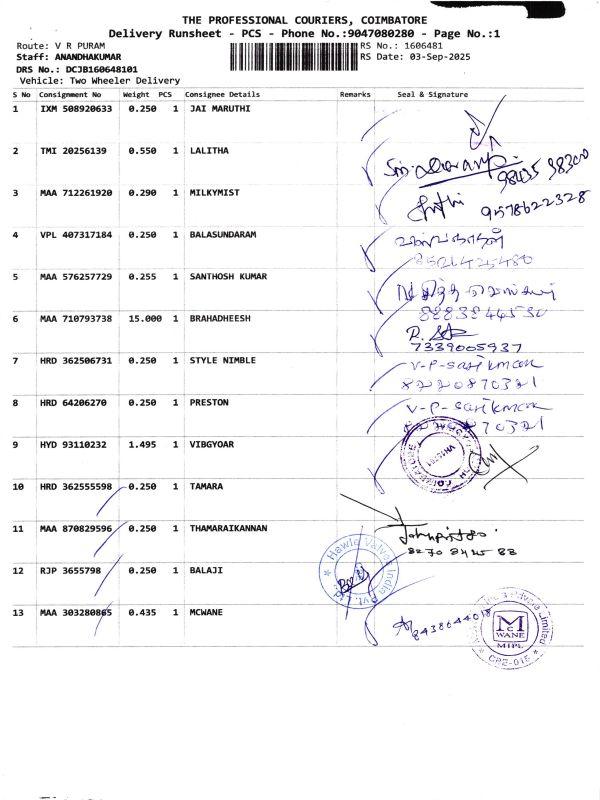 THE PROFESSIONAL COURIERS, COIMBATORE
Delivery Runsheet - PCS - Phone No.:9047080280 - Page No.:1
Route: V R PURAM RS No.: 1606481
Staff: ANANDHAKUMAR RS Date: 03-Sep-2025
DRS No.: DCJB160648101
Vehicle: Two Wheeler Delivery
S No Consignment No Weight PCS Consignee Details Remarks Seal & Signature
1 IXM 508920633 0.250 1 JAI MARUTHI
2 TMI 20256139 0.550 1 LALITHA
98435 98300
3 MAA 712261920 0.290 1 MILKYMIST
9578622328
4 VPL 407317184 0.250 1 BALASUNDARAM
8521425480
5 MAA 576257729 0.255 1 SANTHOSH KUMAR
6 MAA 710793738 15.000 1 BRAHADHEESH
7339005937
7 HRD 362506731 0.250 1 STYLE NIMBLE
V-P-Sasikmar
8220870321
8 HRD 64206270 0.250 1 PRESTON
V-P-Sasikmar
70321
9 HYD 93110232 1.495 1 VIBGYOAR
10 HRD 362555598 0.250 1 TAMARA
11 MAA 870829596 0.250 1 THAMARAIKANNAN
8270 8425 88
12 RJP 3655798 0.250 1 BALAJI
Hawle Valves India Pvt. Ltd.
13 MAA 303280865 0.435 1 MCWANE
8438644018
India Private Limited
M C WANE
MIPL
CPZ-015